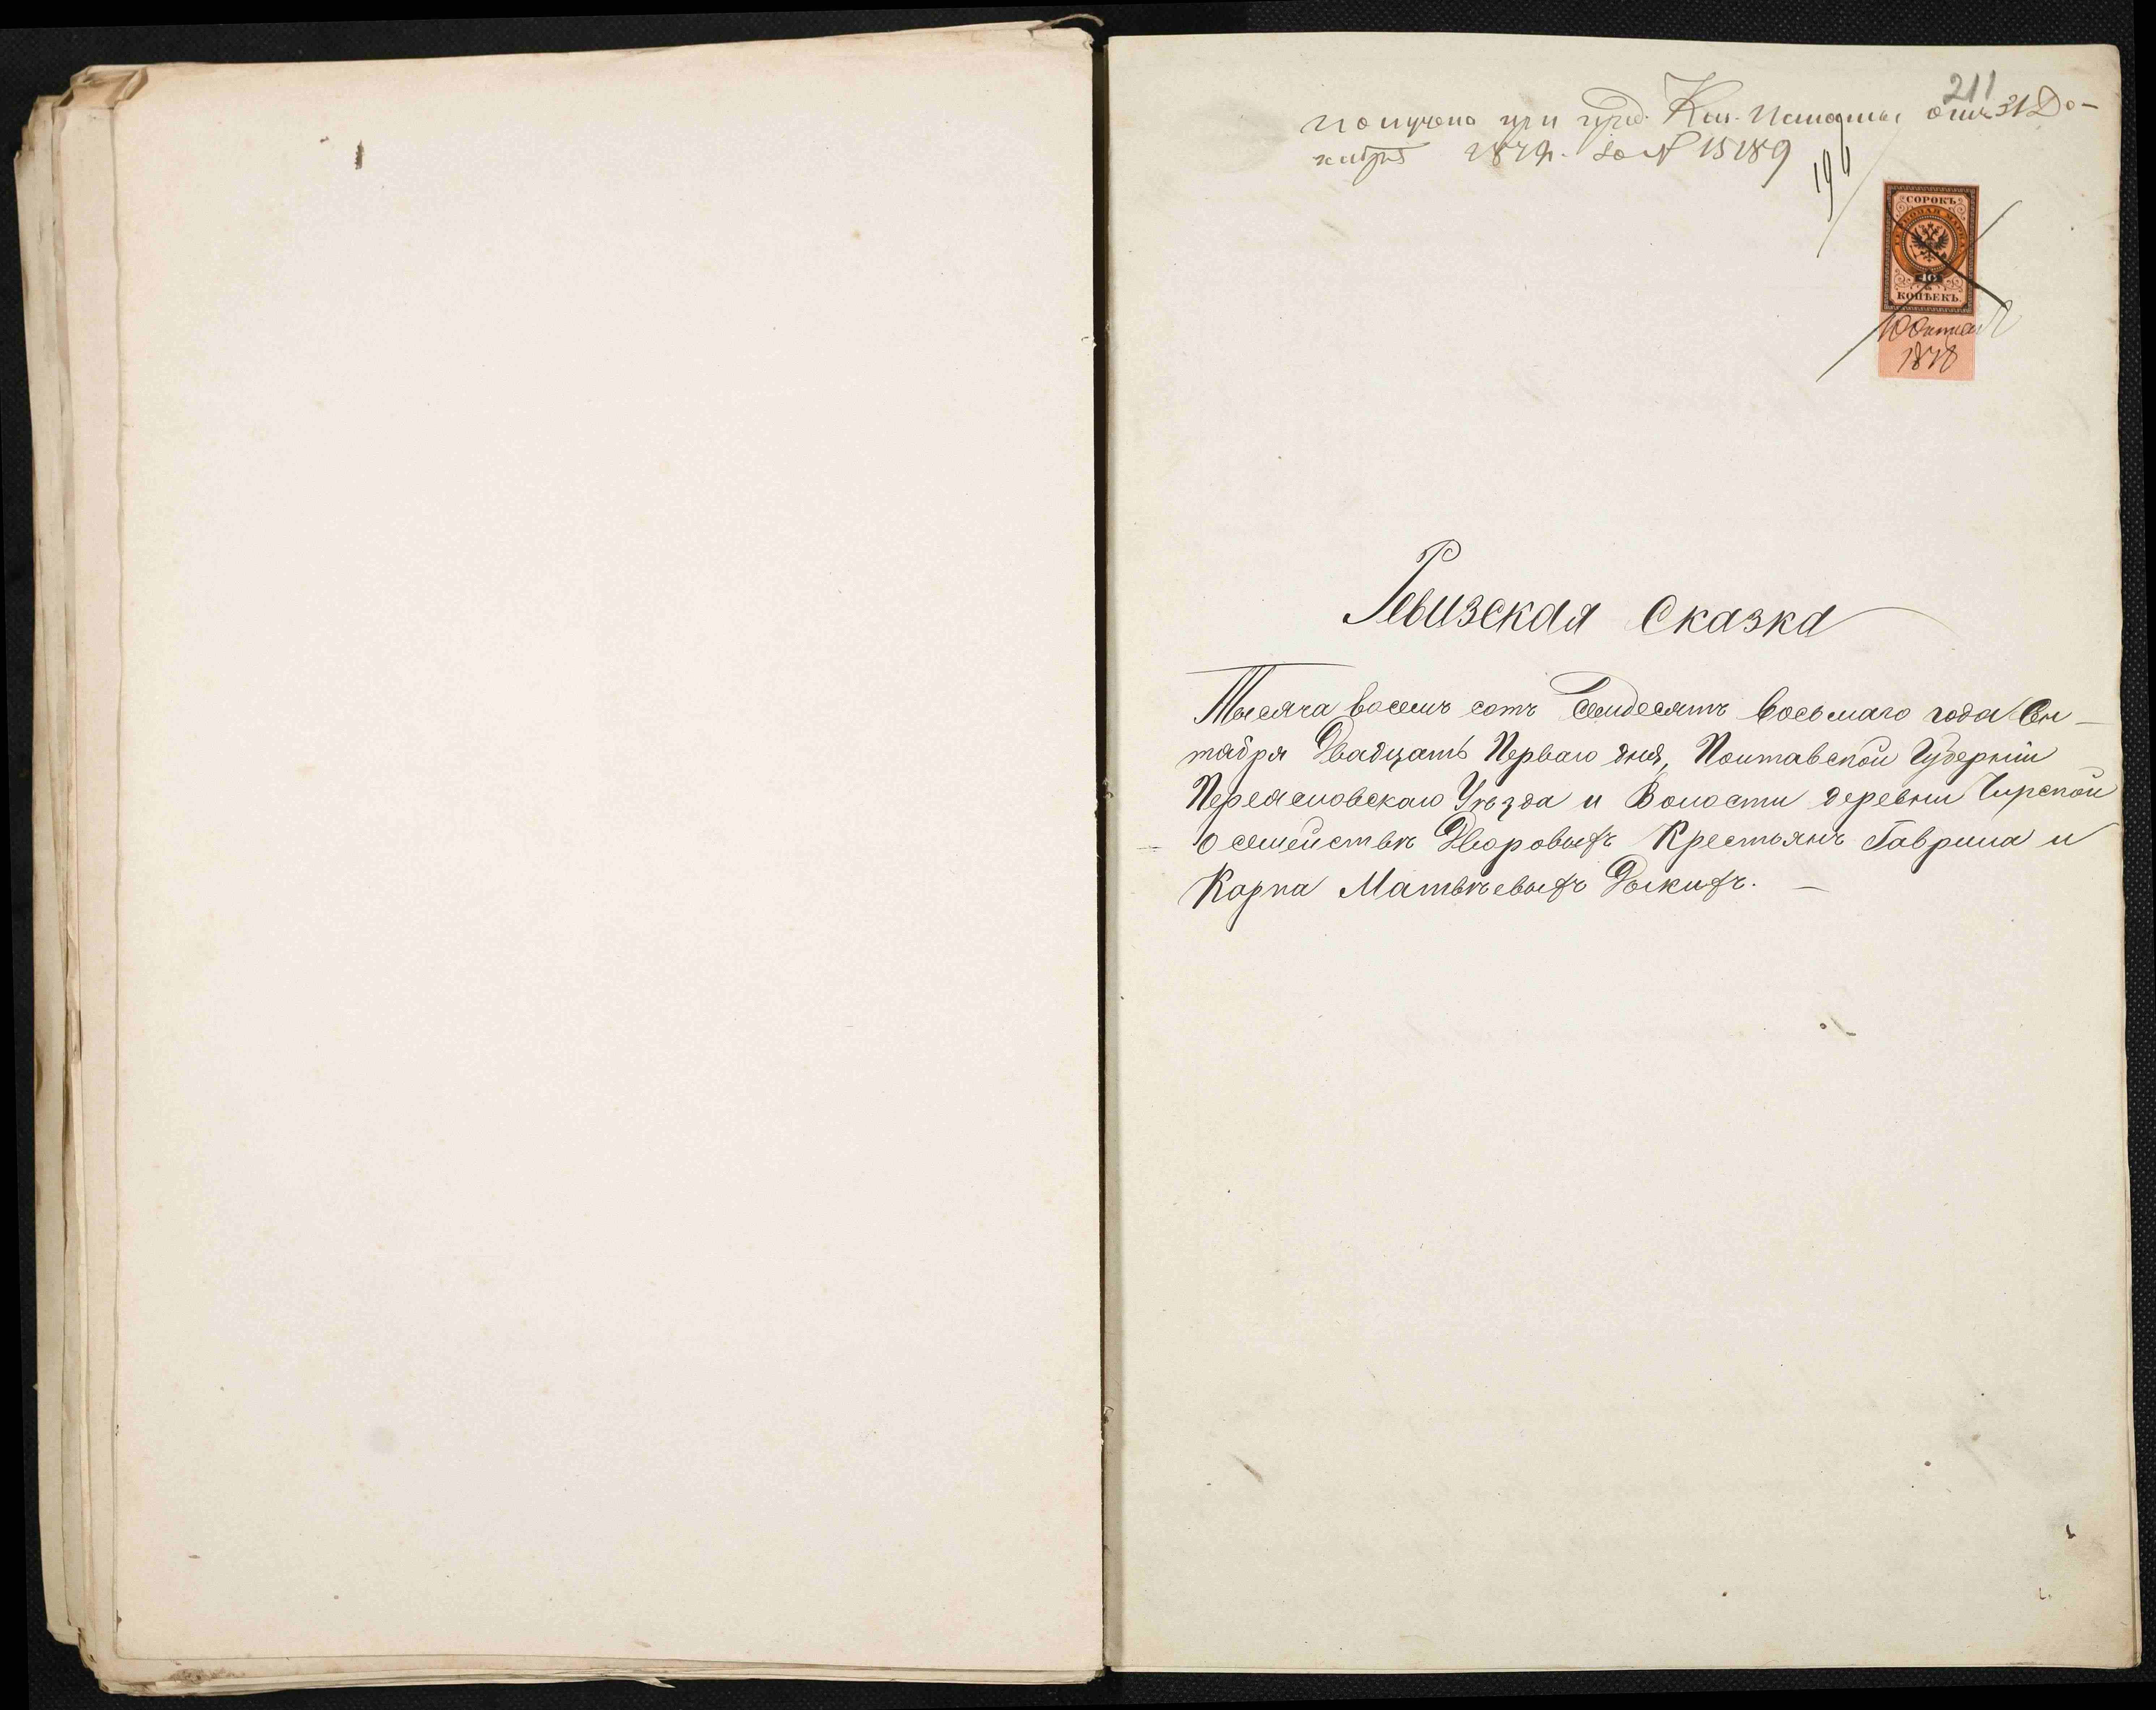 211
получено при пред. Каз. Палаты отъ 31 Де-
кабря 1879 г. за № 15189
194
СОРОКЪ
ГЕРБОВАЯ МАРКА
40
КОПѢЕКЪ.
10 Октября
1878
Ревизская Сказка
Тысяча восемь сотъ Семдесятъ восьмаго года Сен-
тября Двадцать Перваго дня, Полтавской Губерніи
Переясловскаго Уѣзда и Волости деревни Чирской
О семействѣ Дворовыхъ Крестьянъ Гаврила и
Карпа Матвѣевыхъ Дыкихъ. —